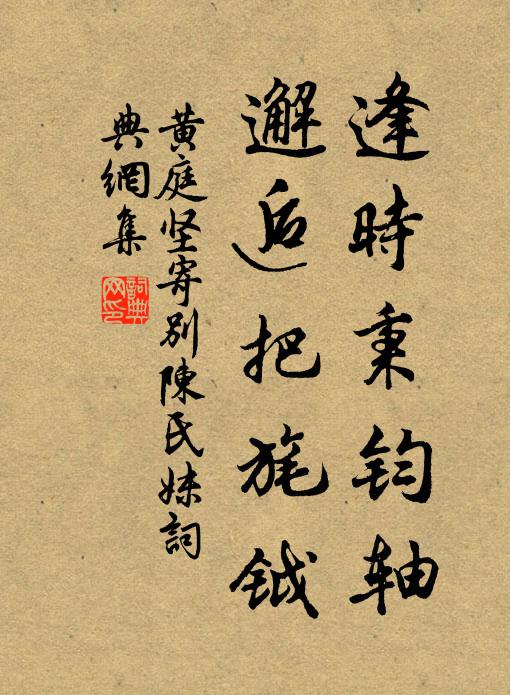 逢時秉鈞軸
邂逅把旄鉞
黄庭坚寄别陳氏妹詞
典網集
詞典网印